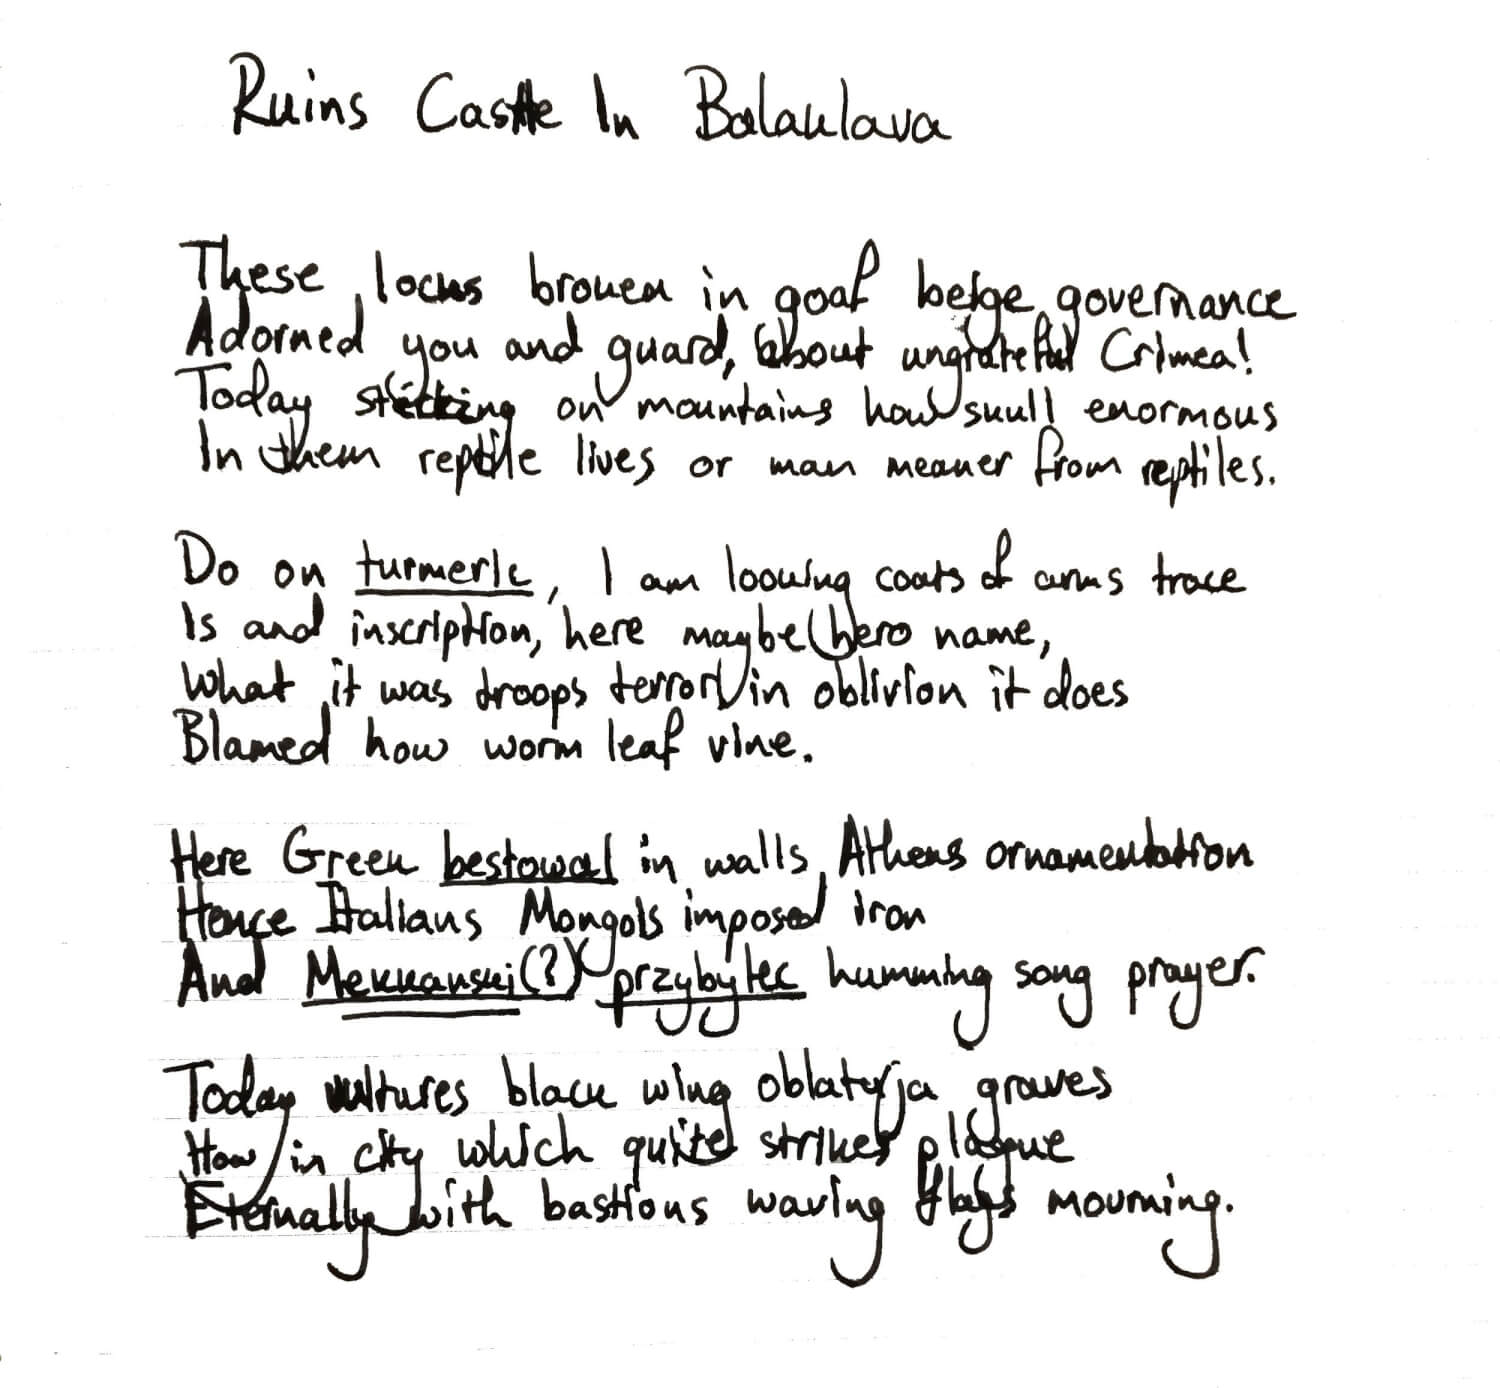 Ruins Castle In Balaklava
These locks broken in goaf beige governance
Adorned you and guard, about ungrateful Crimea!
Today sticking on mountains how skull enormous
In them reptile lives or man meaner from reptiles.
Do on turmeric, I am looking coats of arms trace
Is and inscription, here maybe hero name,
What it was troops terror in oblivion it does
Blamed how worm leaf vine.
Here Greek bestowal in walls Athens ornamentation
Hence Italians Mongols imposed iron
And Mekkanski(?) przybytec humming song prayer.
Today vultures black wing oblatyja graves
How in city which quite strikes plague
Eternally with bastions waving flags mourning.